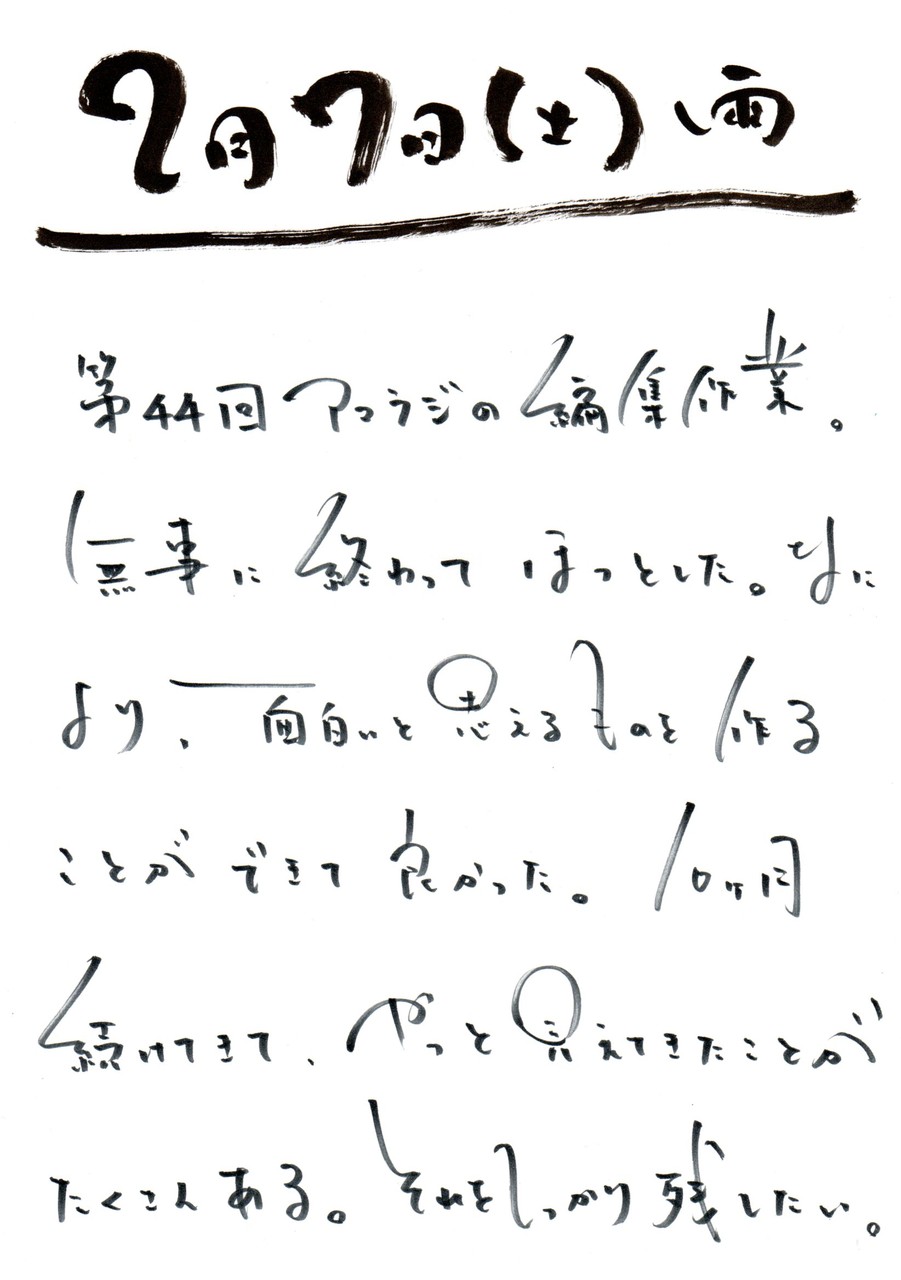 7月7日(土) 雨
第44回アコラジの編集作業。
無事に終わってほっとした。なに
より、面白いと思えるものを作る
ことができて良かった。10ヶ月
続けてきて、やっと見えてきたことが
たくさんある。それをしっかり残したい。